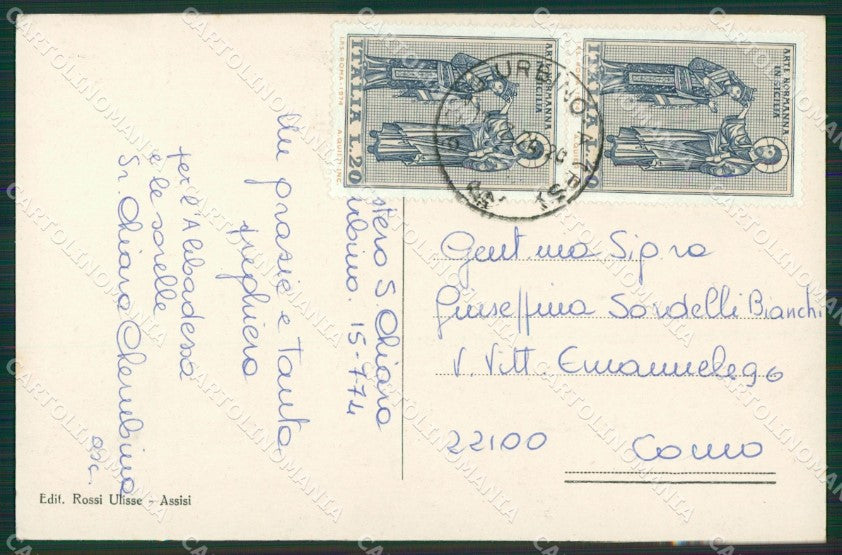 ARTE NORMANNA
IN SICILIA
ITALIA L.20
I.P.S. ROMA-1974 A. QUIETI INC.
ARTE NORMANNA
IN SICILIA
ITALIA L.20
URBINO
Monastero S Chiara
Urbino. 15-7-74
Un grazie e tanta
preghiera
per l'Abbadessa
e le sorelle
Sr. Chiara Cherubina
osc.
Gent.ma Sig.ra
Giuseppina Sordelli Bianchi
V. Vitt. Emanuele 90
22100 Como
Edit. Rossi Ulisse - Assisi
CARTOLINOMANIA